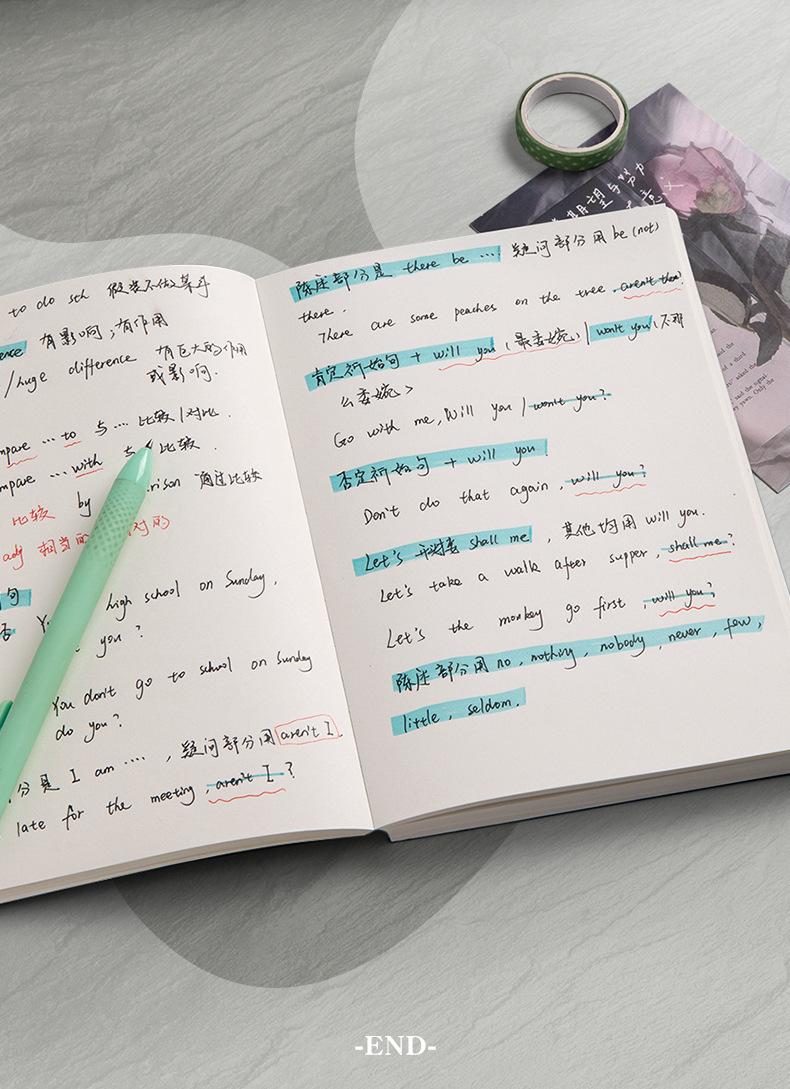 to do sth 假装不做某事
ence 有影响；有作用
/huge difference 有巨大的作用
或影响.
mpare … to 与 … 比较 / 对比.
mpare … with 与 比较.
比较 by rison 通过比较
adj 相当的 对的
句
high school on Sunday,
you?
You don't go to school on Sunday
do you?
分是 I am …. , 疑问部分用 aren't I.
late for the meeting, aren't I?
陈述部分是 there be …. 疑问部分用 be (not)
there.
There are some peaches on the tree, aren't there?
肯定祈使句 + will you (最委婉) / won't you (不那
么委婉>
Go with me, Will you / won't you?
否定祈使句 + will you
Don't do that again, will you?
Let's 开头 shall me, 其他均用 will you.
Let's take a walk after supper, shall me?
Let's the monkey go first, will you?
陈述部分用 no, nothing, nobody, never, few,
little, seldom.
期望与努力
-END-